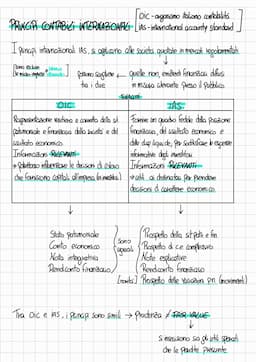 PRINCIPI CONTABILI INTERNAZIONALI
OIC - organismo italiano contabilità
IAS - international accounting standard
I principi internazionali IAS, si applicano alle società quotate in mercati regolamentati
possono scegliere
tra i due
quelle non emittenti finanziari diffusi
in misura rilevante presso il pubblico
OIC
IAS
Rappresentazione veritiera e corretta della sit
patrimoniale e finanziaria della società e del
risultato economico
Informazioni RILEVANTI
che forniscono capitali all'impresa
Fornire un quadro fedele della posizione
finanziaria, del risultato economico e
informative degli investitori
Informazioni RILEVANTI
utili ai destinatari per prendere
decisioni di carattere economico
Stato patrimoniale
Conto economico
Nota integrativa
Rendiconto finanziario
sono
uguali
Prospetto della sit patr e fin
Prospetto di c.e complessivo
Note esplicative
Rendiconto finanziario
Prospetto delle variazioni pn (movimenti)
Tra OIC e IAS, i principi sono simili → Prudenza ≠ FAIR VALUE
che le perdite presunte